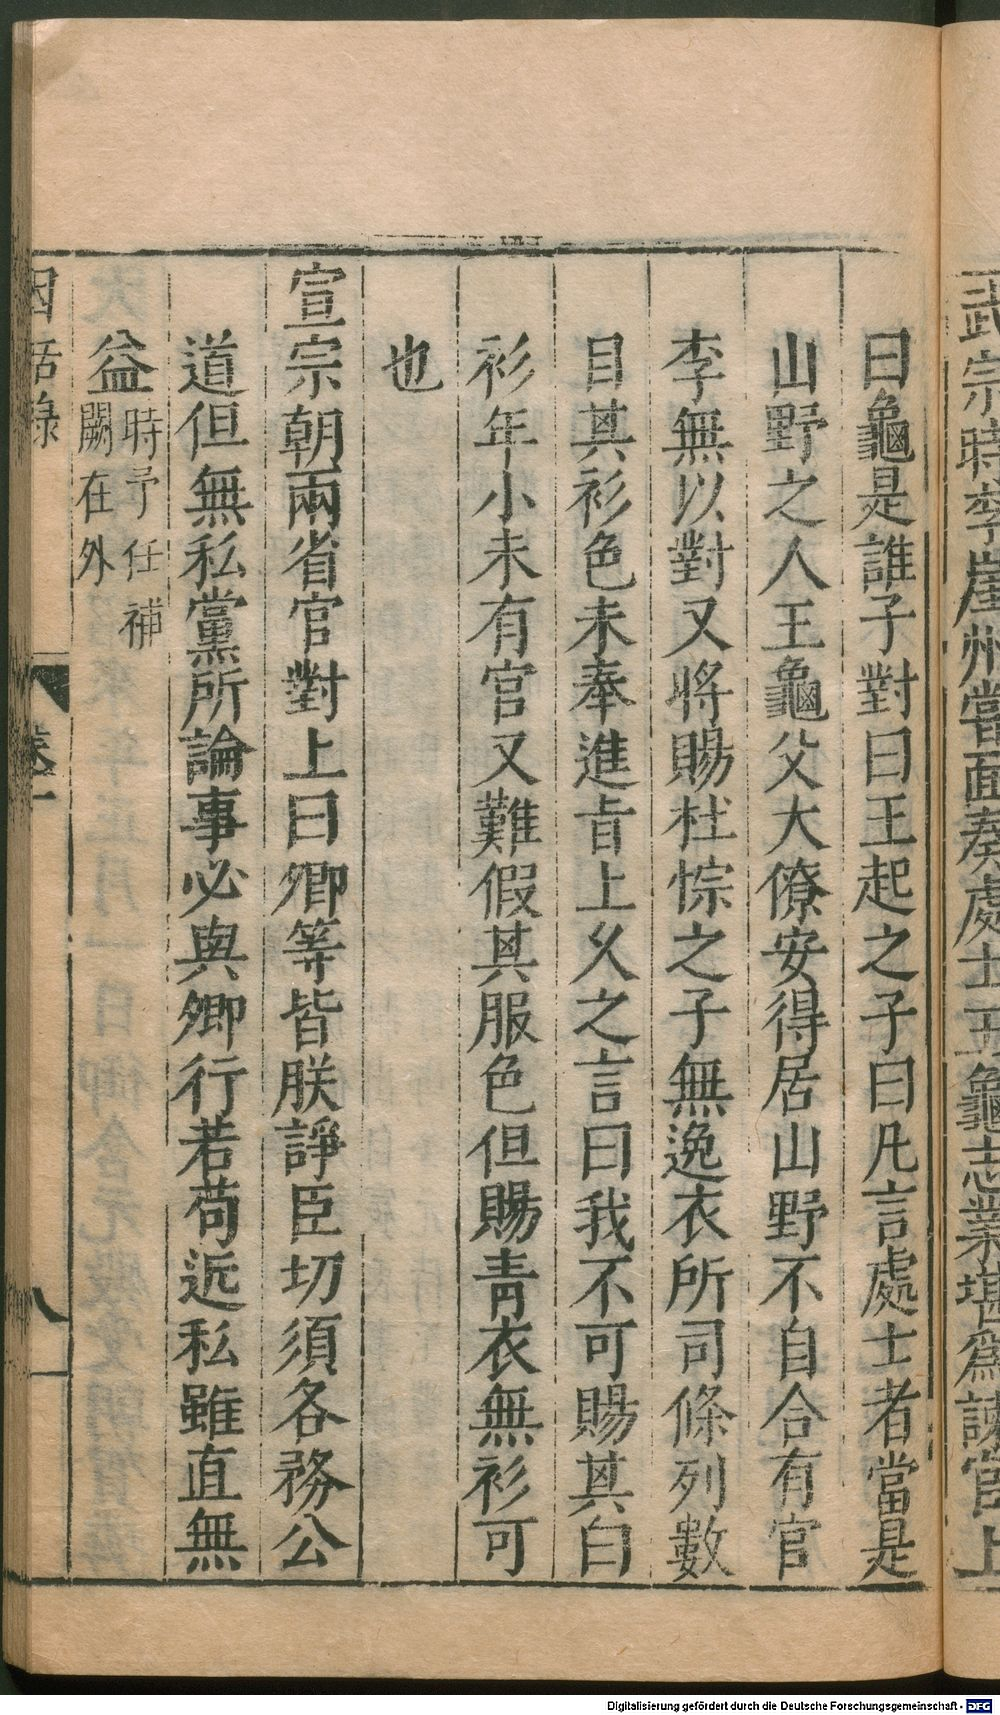 武宗時李崖州嘗面奏處士王龜志業堪爲諫官上
曰龜是誰子對曰王起之子曰凡言處士者當是
山野之人王龜父大僚安得居山野不自合有官
李無以對又將賜杜悰之子無逸衣所司條列數
目其衫色未奉進旨上久之言曰我不可賜其白
衫年小未有官又難假其服色但賜青衣無衫可
也
宣宗朝兩省官對上曰卿等皆朕諍臣切須各務公
道但無私黨所論事必與卿行若苟近私雖直無
益時予任補
闕在外
因話錄 卷一 八
Digitalisierung gefördert durch die Deutsche Forschungsgemeinschaft - DFG